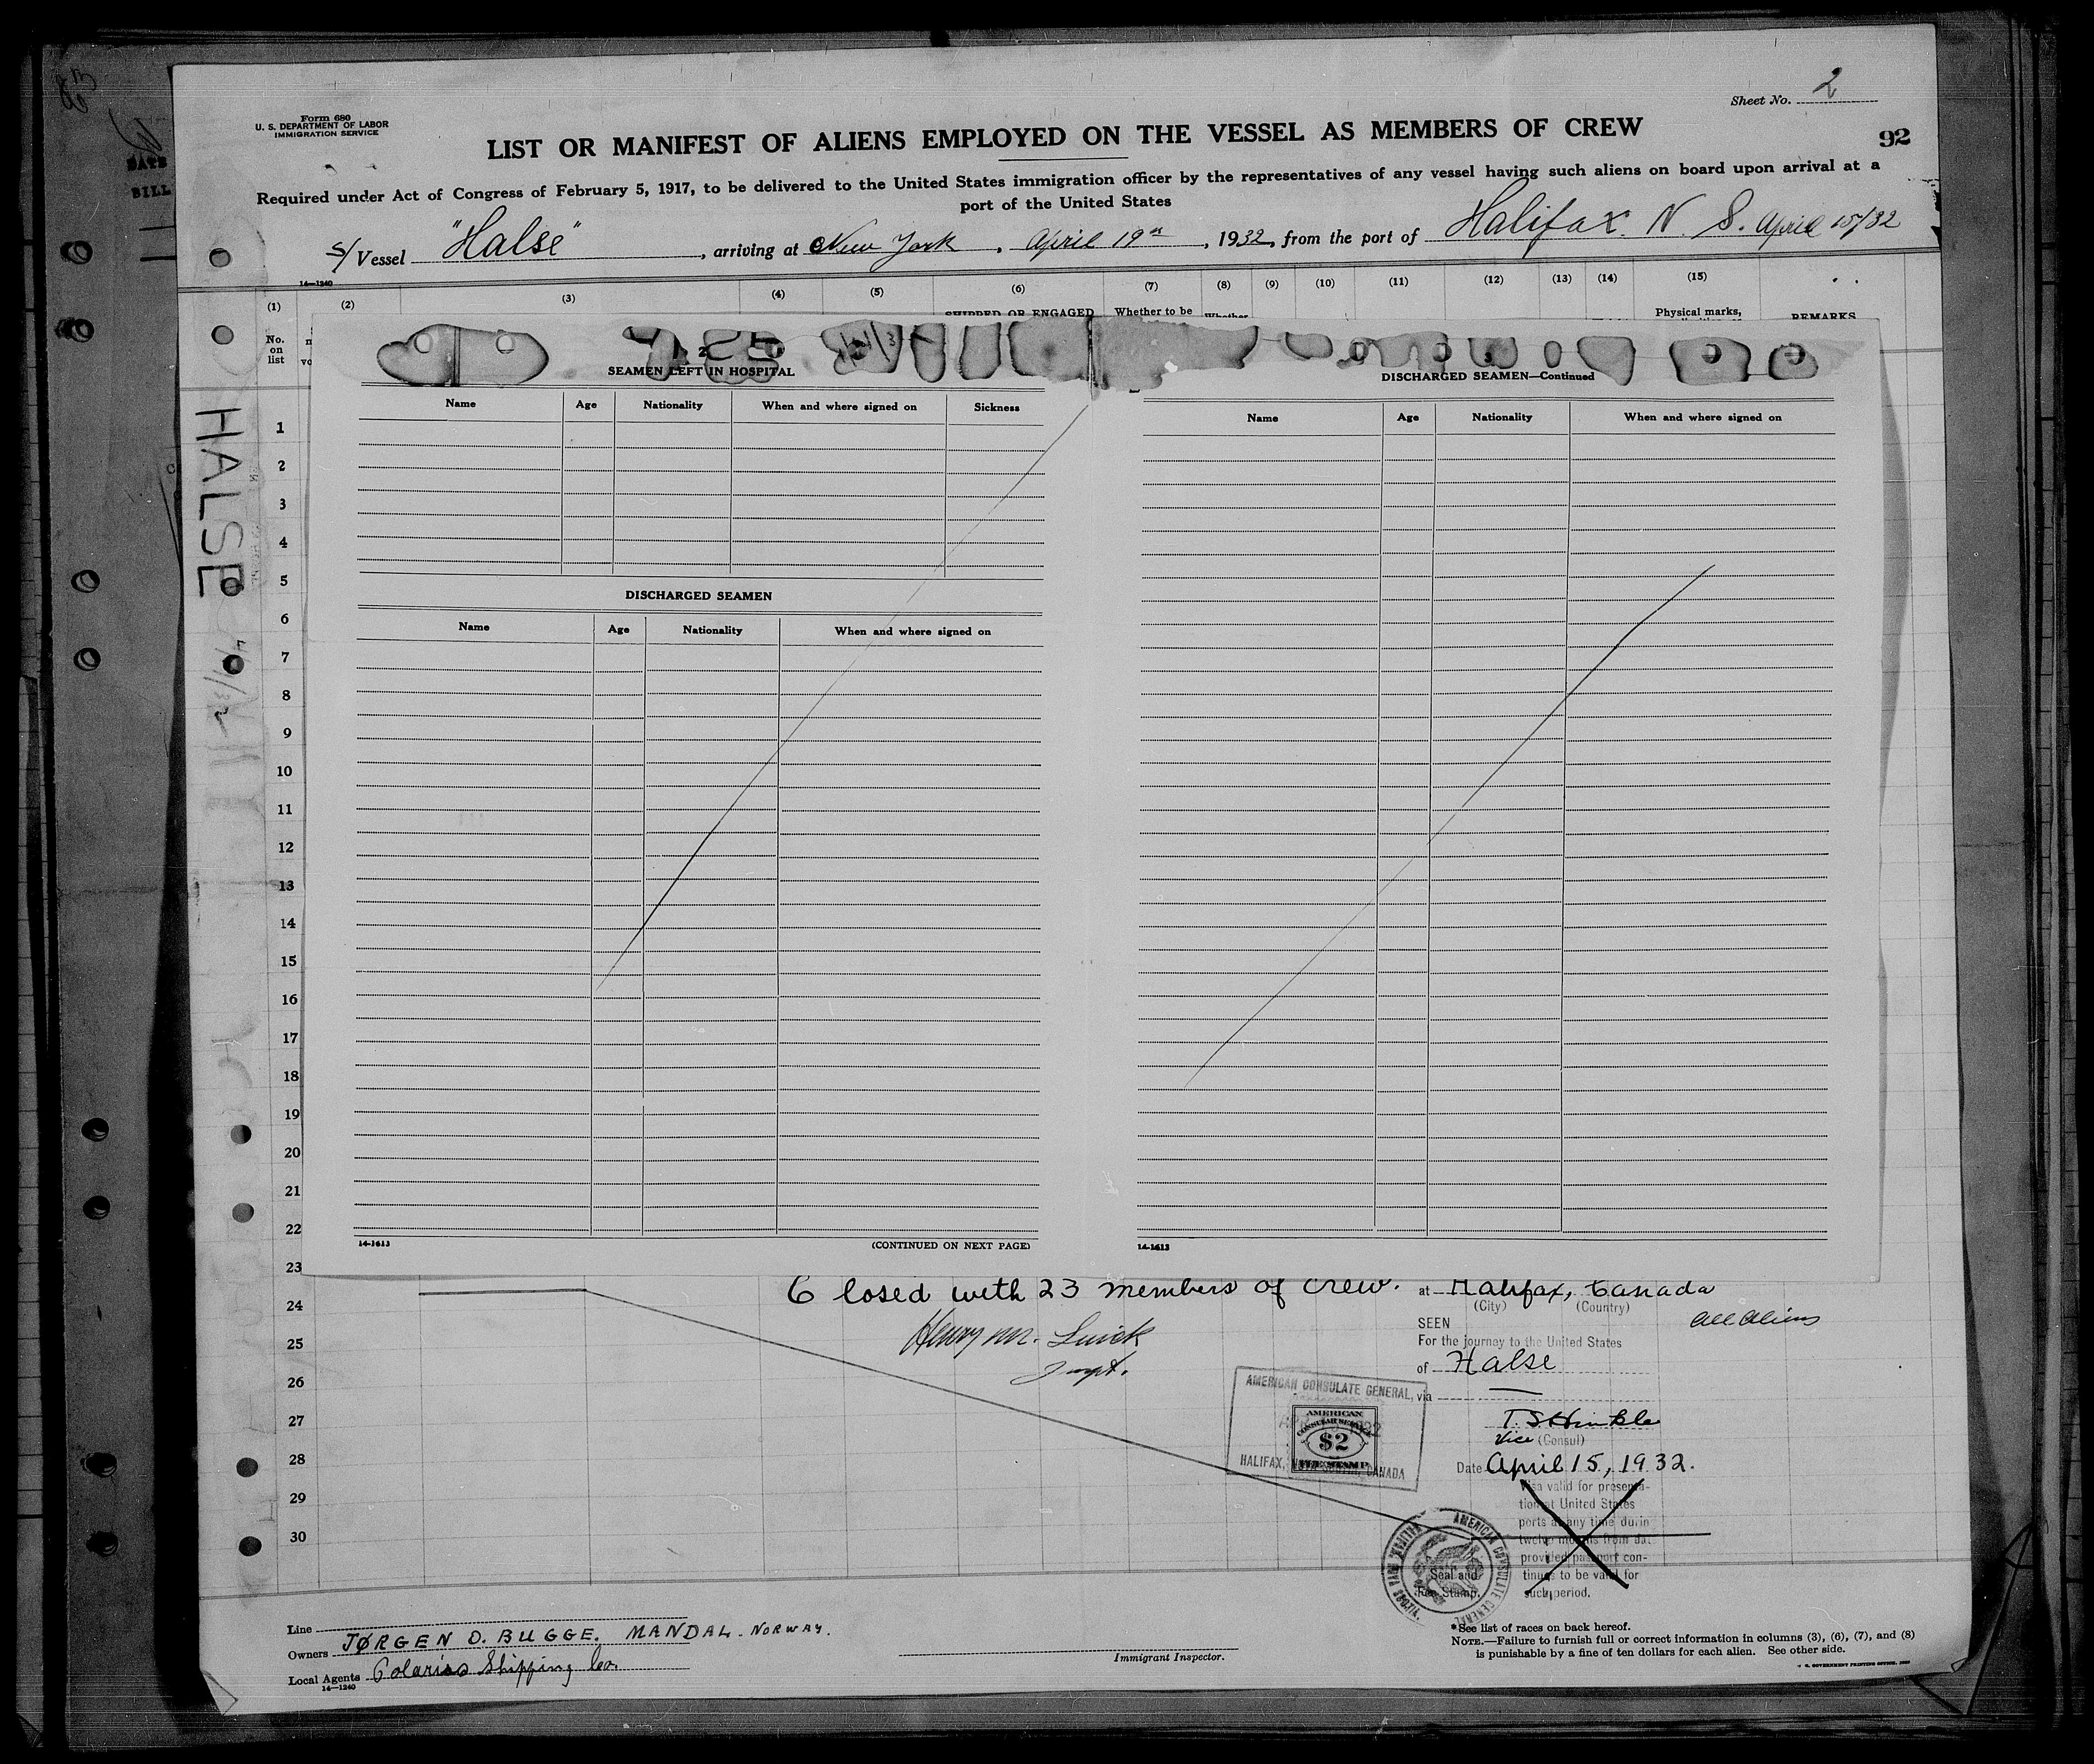 Form 680
U. S. DEPARTMENT OF LABOR
IMMIGRATION SERVICE
Sheet No. 2
LIST OR MANIFEST OF ALIENS EMPLOYED ON THE VESSEL AS MEMBERS OF CREW
92
Required under Act of Congress of February 5, 1917, to be delivered to the United States immigration officer by the representatives of any vessel having such aliens on board upon arrival at a
port of the United States
S/Vessel "Halse", arriving at New York, April 19th, 1932, from the port of Halifax. N. S. April 15/32
14-1240
(1) (2) (3) (4) (5) (6) (7) (8) (9) (10) (11) (12) (13) (14) (15)
SHIPPED OR ENGAGED Whether to be Whether Physical marks, REMARKS
No.
on
list
DATE
BILL
HALSE
SEAMEN LEFT IN HOSPITAL
Name Age Nationality When and where signed on Sickness
DISCHARGED SEAMEN
Name Age Nationality When and where signed on
14-1613 (CONTINUED ON NEXT PAGE)
DISCHARGED SEAMEN—Continued
Name Age Nationality When and where signed on
14-1613
1
2
3
4
5
6
7
8
9
10
11
12
13
14
15
16
17
18
19
20
21
22
23
24
25
26
27
28
29
30
Closed with 23 members of crew.
Henry M.
at Halifax, Canada
(City) (Country)
SEEN all aliens
For the journey to the United States
of Halse
via
T. S. Hinkle
Vice (Consul)
Date April 15, 1932.
Visa valid for presenta-
tion at United States
ports at any time durin
twelve months from dat
provided passport con-
tinues to be valid for
such period.
AMERICAN CONSULATE GENERAL,
HALIFAX, NOVA SCOTIA, CANADA
AMERICAN
CONSULAR SERVICE
$2
FEE STAMP
AMERICAN CONSULATE GENERAL
HALIFAX, NOVA SCOTIA.
Seal and
Fee Stamp.
Line
Owners JØRGEN O. BUGGE. MANDAL. NORWAY.
Local Agents Polarias Shipping Co.
14-1240
Immigrant Inspector.
*See list of races on back hereof.
NOTE.—Failure to furnish full or correct information in columns (3), (6), (7), and (8)
is punishable by a fine of ten dollars for each alien. See other side.
U. S. GOVERNMENT PRINTING OFFICE